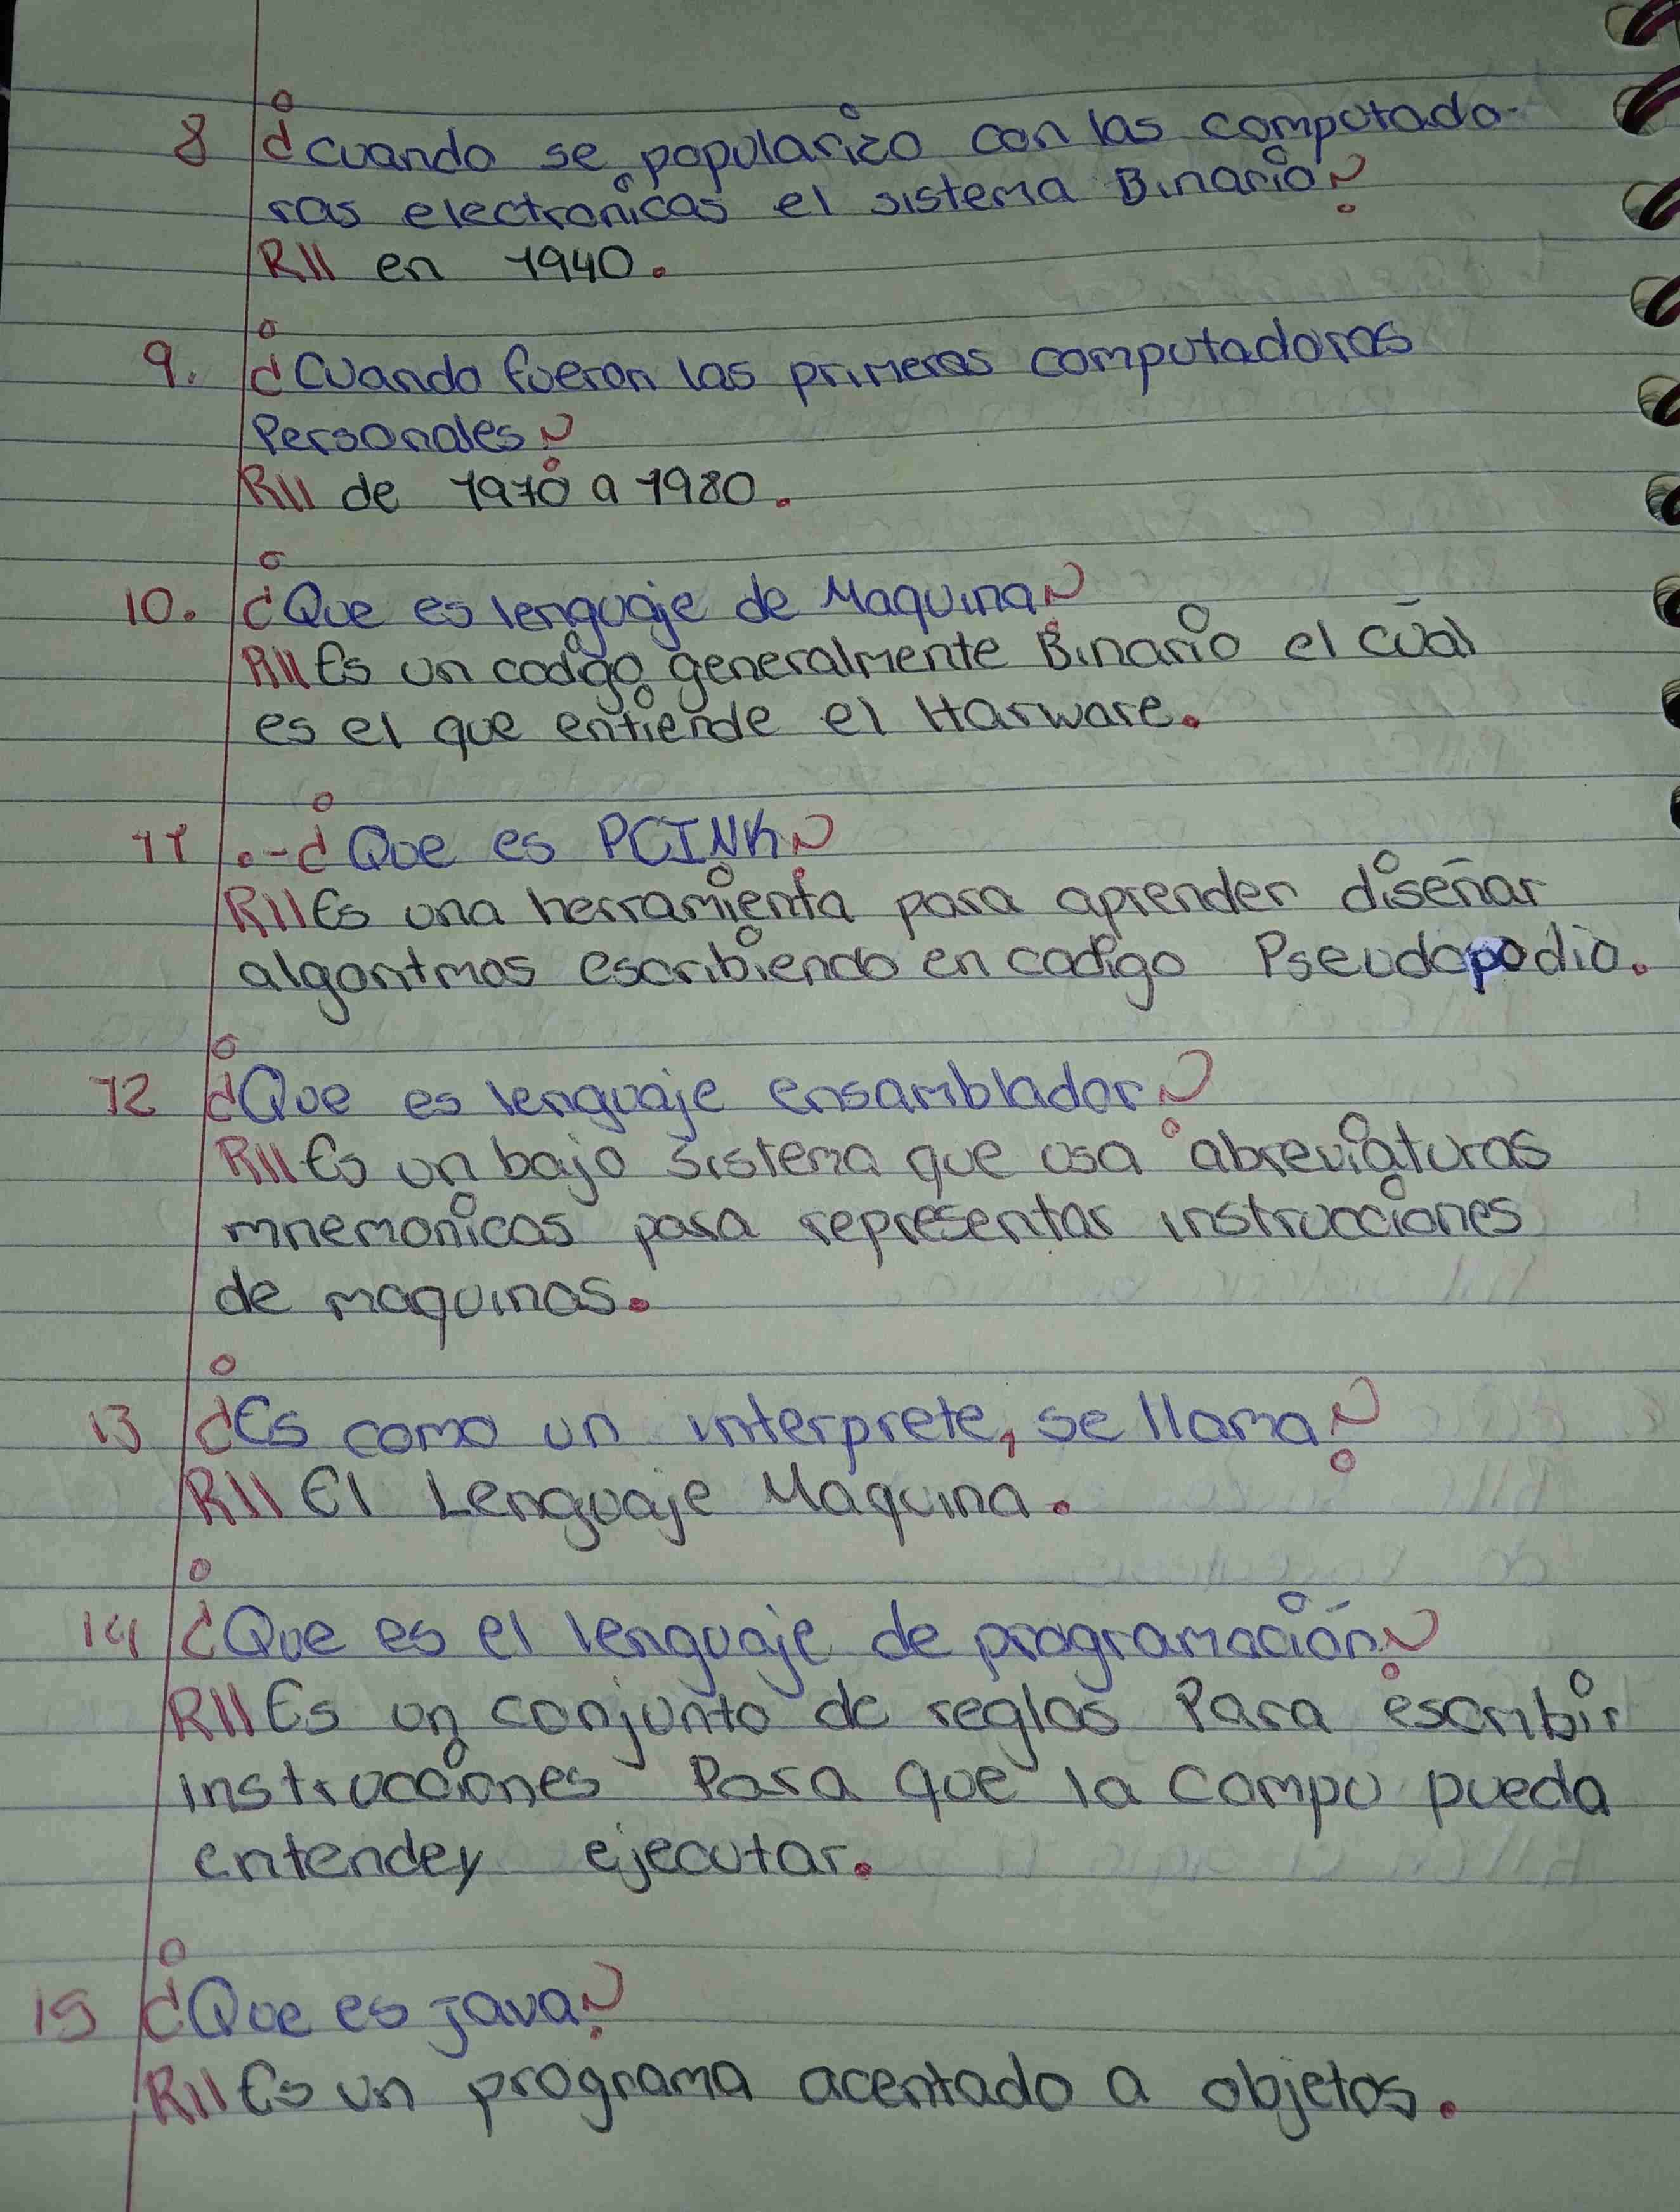 8 ¿cuando se popularizo con las computado-
ras electronicas el sistema Binario?
R// en 1940.
9. ¿Cuando fueron las primeras computadoras
Personales?
R// de 1970 a 1980.
10. ¿Que es lenguaje de Maquina?
R// Es un codigo generalmente Binario el cual
es el que entiende el Harware.
11.-¿Que es PCINK?
R// Es una herramienta para aprender diseñar
algoritmos escribiendo en codigo Pseudopodio.
12 ¿Que es lenguaje ensamblador?
R// Es un bajo sistema que usa abreviaturas
mnemonicas para representar instrucciones
de maquinas.
13 ¿Es como un interprete, se llama?
R// El Lenguaje Maquina.
14 ¿Que es el lenguaje de programación?
R// Es un conjunto de reglas Para escribir
instrucciones Para que la compu pueda
entendey ejecutar.
15 ¿Que es java?
R// Es un programa acentado a objetos.